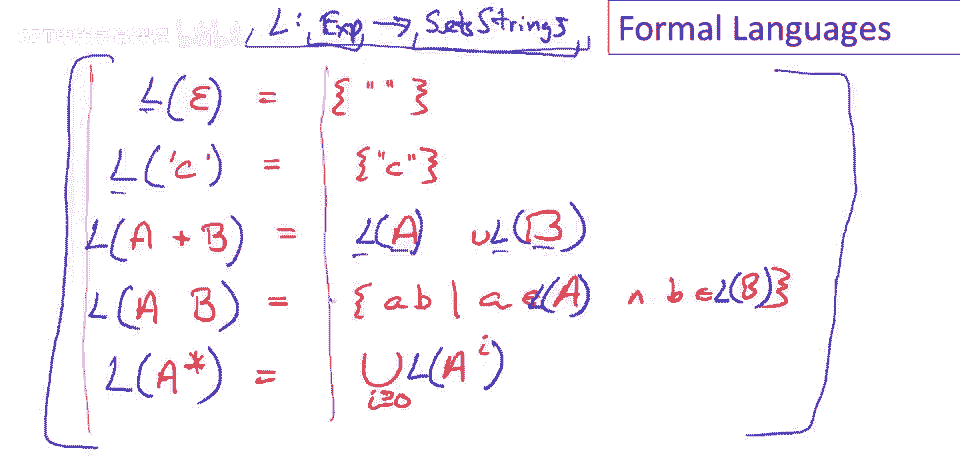 L: Exp → Sets Strings
Formal Languages
L(ε) = { " " }
L('c') = { "c" }
L(A + B) = L(A) ∪ L(B)
L(A B) = { ab | a ∈ L(A) ∧ b ∈ L(B) }
L(A*) = ⋃_{i≥0} L(A^i)